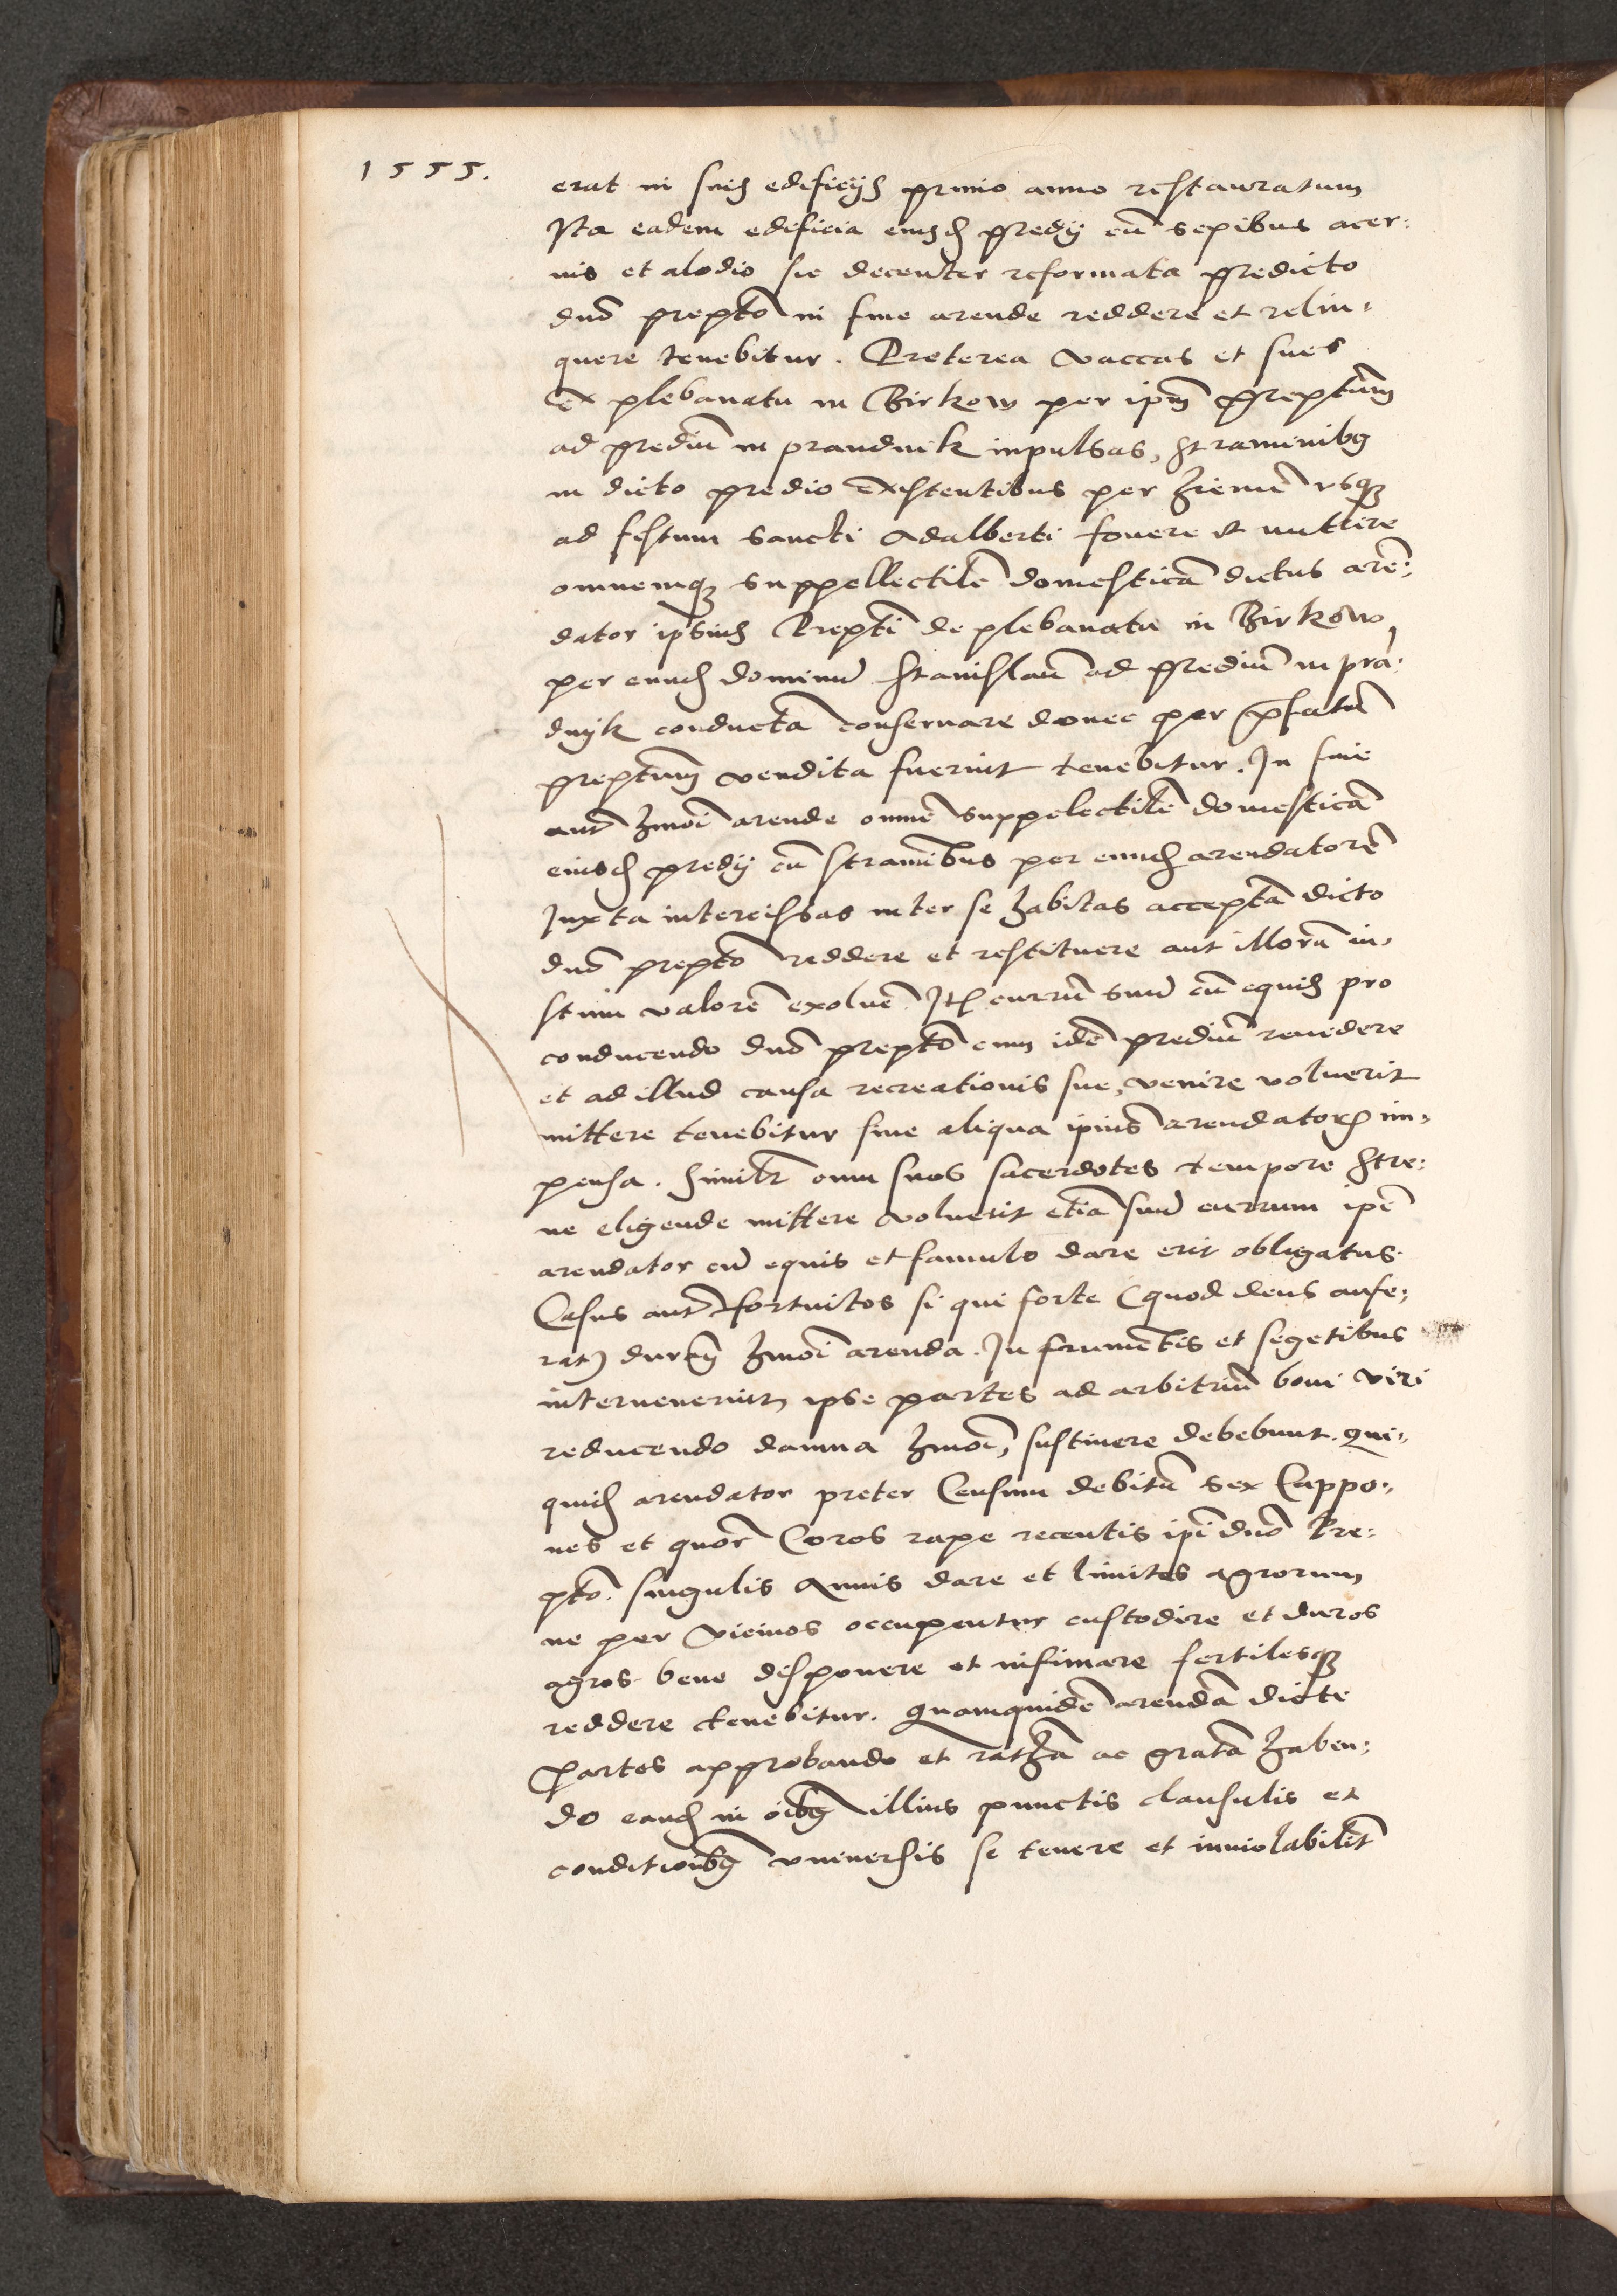 1555.
erat in suis edificijs primo anno restauratum
Ita eadem edificia eiusd predij cu sepibus acer:
nis et alodio sic decenter reformata predicto
dno prepto in fine arende reddere et relin,
quere tenebitur. Preterea vaccas et sues
ex plebanatu in Birkow per ipm preptum
ad prediu in prandnik inpulsas, straminibq
in dicto predio existentibus per hieme vsqz
ad festum Sancti Adalberti fouere et nutrire
omnemqz suppellectile domestica dictus are:
dator ipsius Prepti de plebanatu in Birkow
per eund dominu Stanislau ad prediu in pra,
dnyk conducta conseruare donec per prefatu
preptum vendita fuerint tenebitur. In fine
aut hmoi arende omne suppelectile domestica
eiusd predij cu stramibus per eund arendatore
Juxta intercissas inter se habitas accepta dicto
dno prepto reddere et restituere aut illoru iu,
stum valore exoluere. Ite currum suu cu equis pro
conducendo dno prepto cum ide prediu reuidere
et ad illud causa recreationis sue, venire voluerit
mittere tenebitur sine aliqua ipius arendatoris im,
pensa. Similr cum suos sacerdotes tempore Stre:
ne eligende mittere voluerit etia suu currum ipe
arendator cu equis et famulo dare erit obligatus.
Casus aut fortuitos si qui forte (quod deus aufe,
rat) durate hmoi arenda. In frumentis et segetibus
interuenerint ipse partes ad arbitriu boni viri
reducendo damna hmoi, sustinere debebunt. qui,
quid arendator preter Censum debitu sex Cappo,
nes et quor Coros rape recentis ipi dno Pre:
pto. singulis Annis dare et limites agrorum
ne per vicinos occupentur custodire et duros
agros bene disponere et infimare fertilesqz
reddere tenebitur. Quamquide arenda dicte
Partes approbando et ratha ac grata haben:
do eand in oibq illius punctis clausulis et
conditioibq vniuersis se tenere et inuiolabilit